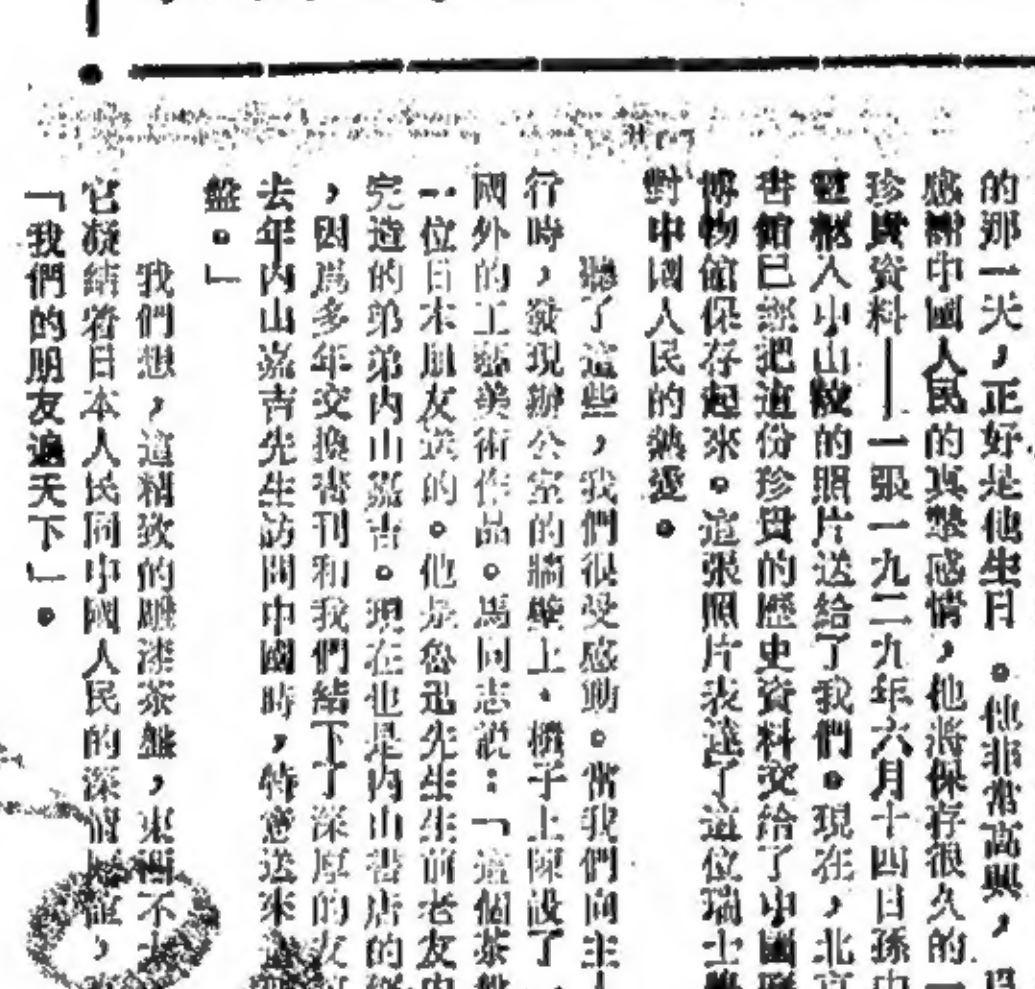 的那一天，正好是他生日。他非常高興，
感謝中國人民的真摯感情，他將保存很久的一
珍貴資料——一張一九二九年六月十四日孫中
靈柩入中山陵的照片送給了我們。現在，北京
書館已經把這份珍貴的歷史資料交給了中國歷
博物館保存起來。這張照片表達了這位瑞士
對中國人民的熱愛。
聽了這些，我們很受感動。當我們向主
行時，發現辦公室的牆壁上、櫃子上陳設了
國外的工藝美術作品。馬同志說：「這個茶盤
一位日本朋友送的。他是魯迅先生生前老友內
完造的弟弟內山嘉吉。現在也是內山書店的
，因爲多年交換書刊和我們結下了深厚的友
去年內山嘉吉先生訪問中國時，特意送來
盤。」
我們想，這精致的雕漆茶盤，東西不大
它凝結着日本人民同中國人民的深情
「我們的朋友遍天下」。